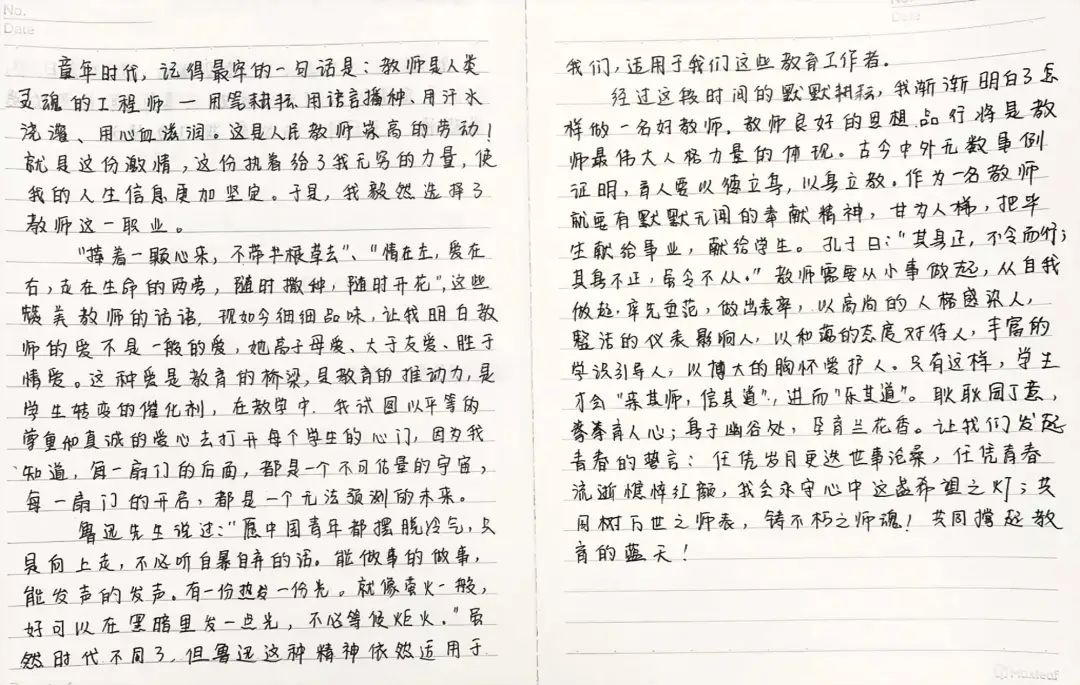 No.
Date
童年时代，记得最牢的一句话是：教师是人类
灵魂的工程师一用笔耕耘、用语言播种、用汗水
浇灌、用心血滋润。这是人民教师崇高的劳动！
就是这份激情，这份执着给了我无穷的力量，使
我的人生信息更加坚定。于是，我毅然选择了
教师这一职业。
"捧着一颗心来，不带半根草去"、"情在左，爱在
右，走在生命的两旁，随时撒种，随时开花"，这些
精美教师的话语，现如今细细品味，让我明白教
师的爱不是一般的爱，她高于母爱、大于友爱、胜于
情爱。这种爱是教育的桥梁，是教育的推动力，是
学生转变的催化剂，在教学中，我试图以平等的
尊重和真诚的爱心去打开每个学生的心门，因为我
知道，每一扇门的后面，都是一个不可估量的宇宙，
每一扇门的开启，都是一个无法预测的未来。
鲁迅先生说过："愿中国青年都摆脱冷气，只
是向上走，不必听自暴自弃的话。能做事的做事，
能发声的发声。有一份热发一份光。就像萤火一般，
好可以在黑暗里发一点光，不必等候炬火。"虽
然时代不同了，但鲁迅这种精神依然适用于
Date
我们，适用于我们这些教育工作者。
经过这段时间的默默耕耘，我渐渐明白了怎
样做一名好教师。教师良好的思想、品行将是教
师最伟大人格力量的体现。古今中外无数事例
证明，育人要以德立身，以身立教。作为一名教师
就要有默默无闻的奉献精神，甘为人梯，把毕
生献给事业，献给学生。孔子曰："其身正，不令而行；
其身不正，虽令不从。"教师需要从小事做起，从自我
做起，率先垂范，做出表率，以高尚的人格感染人，
整洁的仪表影响人，以和蔼的态度对待人，丰富的
学识引导人，以博大的胸怀爱护人。只有这样，学生
才会"亲其师，信其道"，进而"乐其道"。耿耿园丁意，
拳拳育人心；身于幽谷处，孕育兰花香。让我们发起
青春的誓言：任凭岁月更迭世事沧桑，任凭青春
流逝憔悴红颜，我会永守心中这盏希望之灯；共
同树万世之师表，铸不朽之师魂！共同撑起教
育的蓝天！
Maxleaf